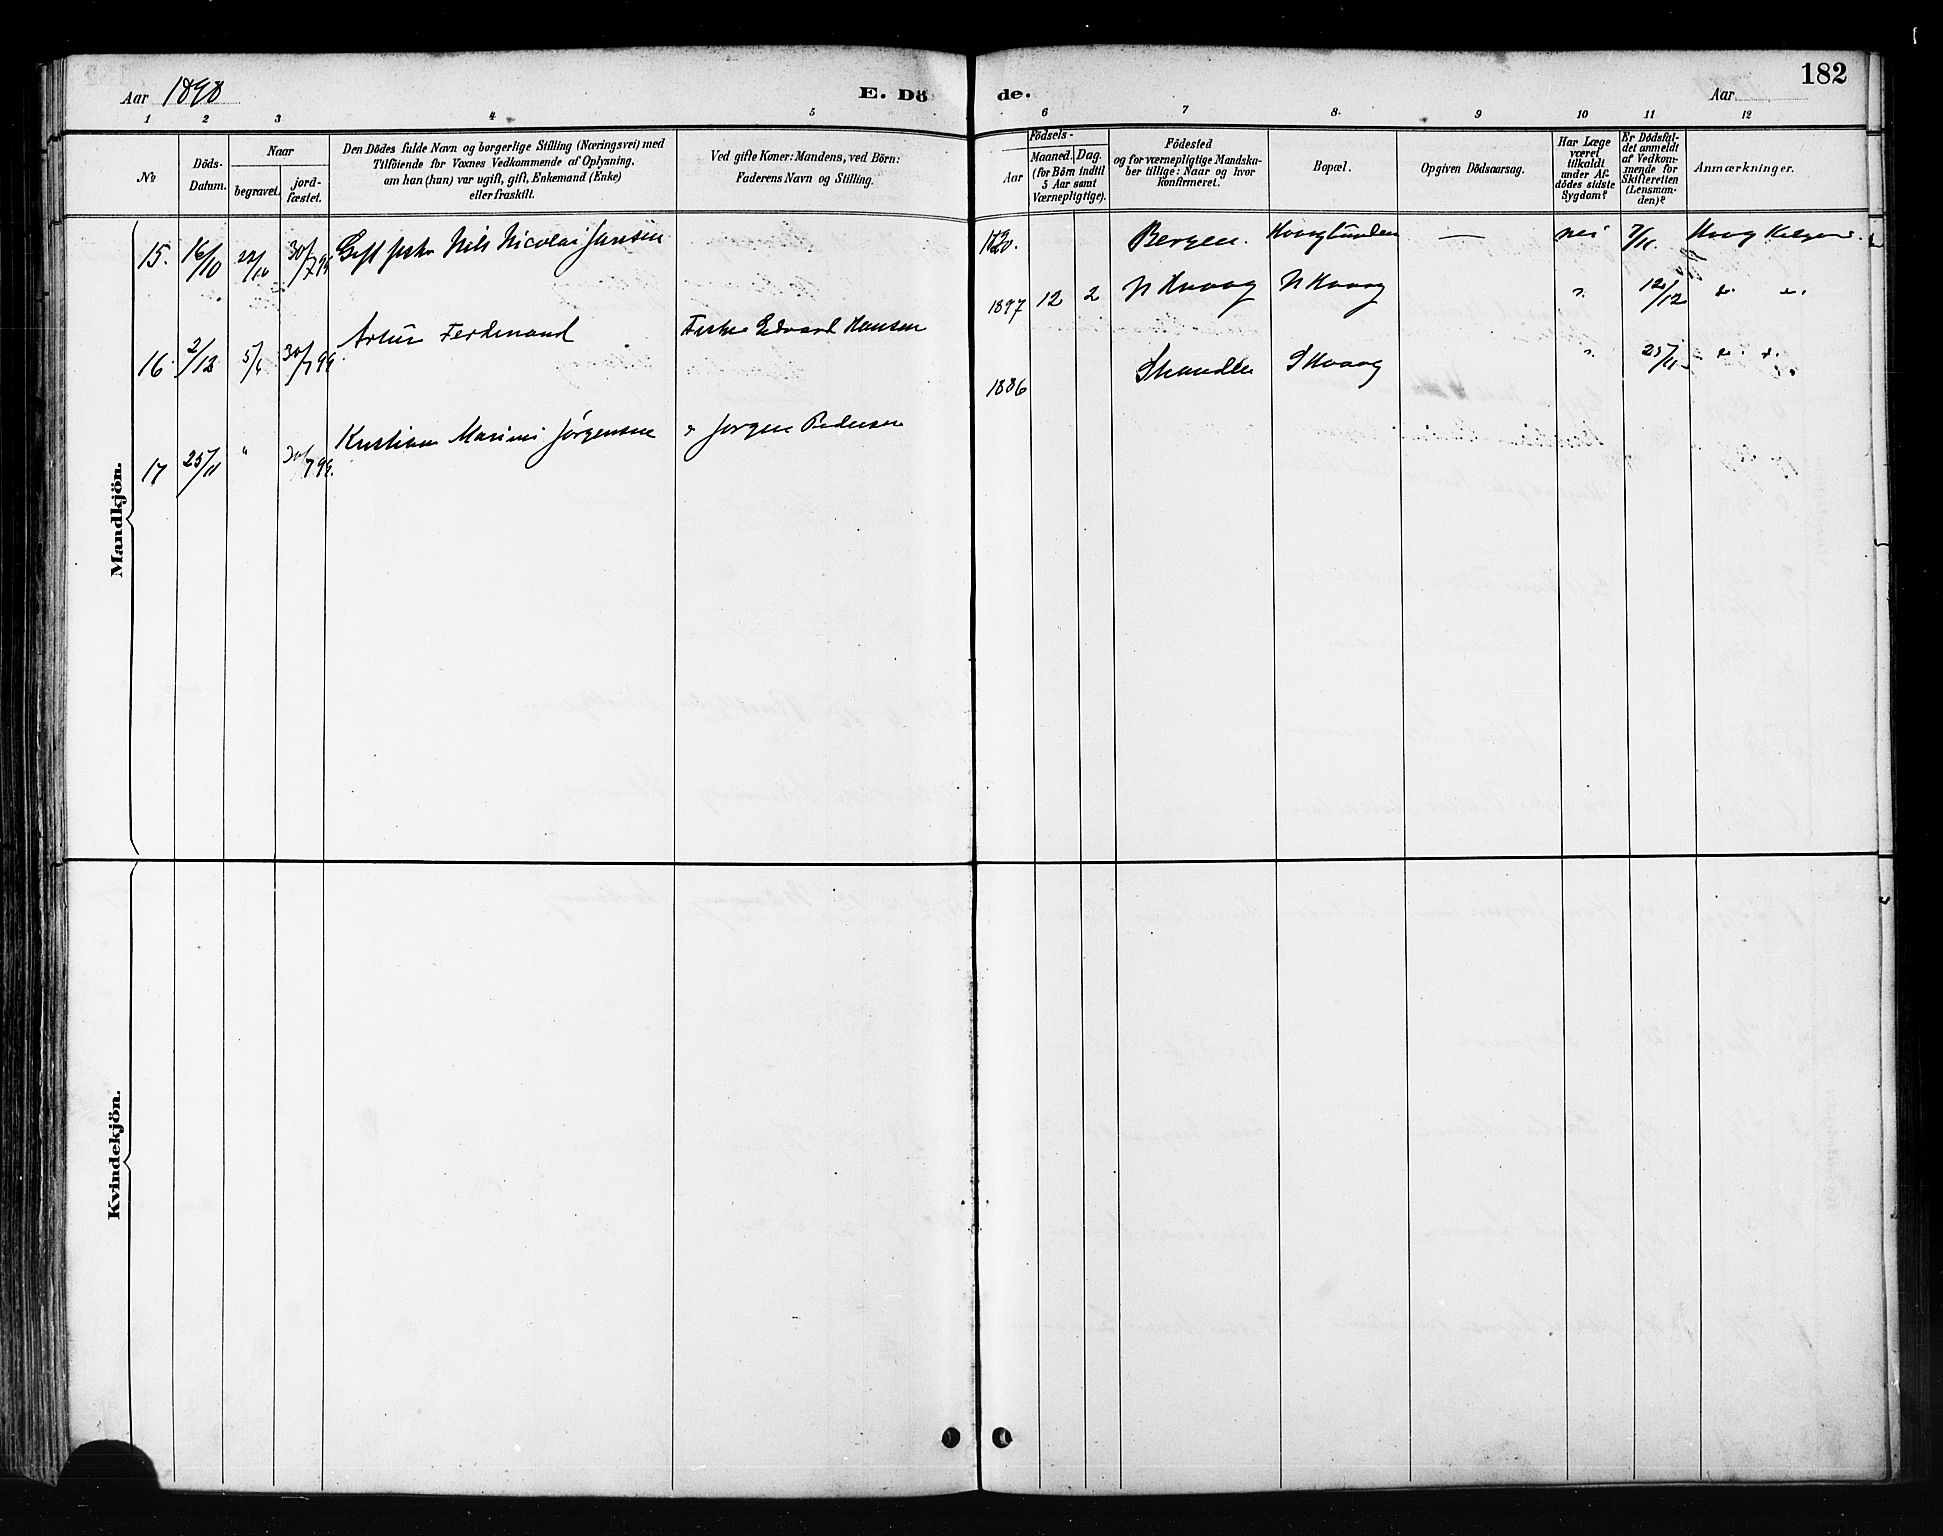 Aar 1898
E. Dö
de.
182
Aar
1 2 3 4 5 6 7 8. 9 10 11 12
No
Döds-
Datum.
Naar
begravet.
jord-
fæstet.
Den Dödes fulde Navn og borgerlige Stilling (Næringsvei) med
Tilföiende for Voxnes Vedkommende af Oplysning,
om han (hun) var ugift, gift, Enkemand (Enke)
eller fraskilt.
Ved gifte Koner: Mandens, ved Börn:
Faderens Navn og Stilling.
Födsels-
Aar
Maaned. Dag.
(for Börn indtil
5 Aar samt
Værnepligtige).
Födested
og for værnepligtige Mandska-
ber tillige: Naar og hvor
Konfirmeret.
Bopæl.
Opgiven Dödsaarsag.
Har Læge
været
tilkaldt
under Af-
dödes sidste
Sygdom?
Er Dödsfal-
det anmeldt
af Vedkom-
mende for
Skifteretten
(Lensman-
den)?
Anmærkninger.
Mandkjön.
15. 16/10 22/10 30/7 99 Gift fisker Nils Nicolai Jansen Bergen. — nei 7/11
16. 2/12 5/6 30/7 99 Artur Ferdinand Fisker Edvard Hansen 1897 12 2 N Kvaag N Kvaag " 12/12
17 25/11 " 30/7 99. Kristian Marius Jørgensen " Jørgen Pedersen 1886 S Kvaag " 25/11
Kvindekjön.